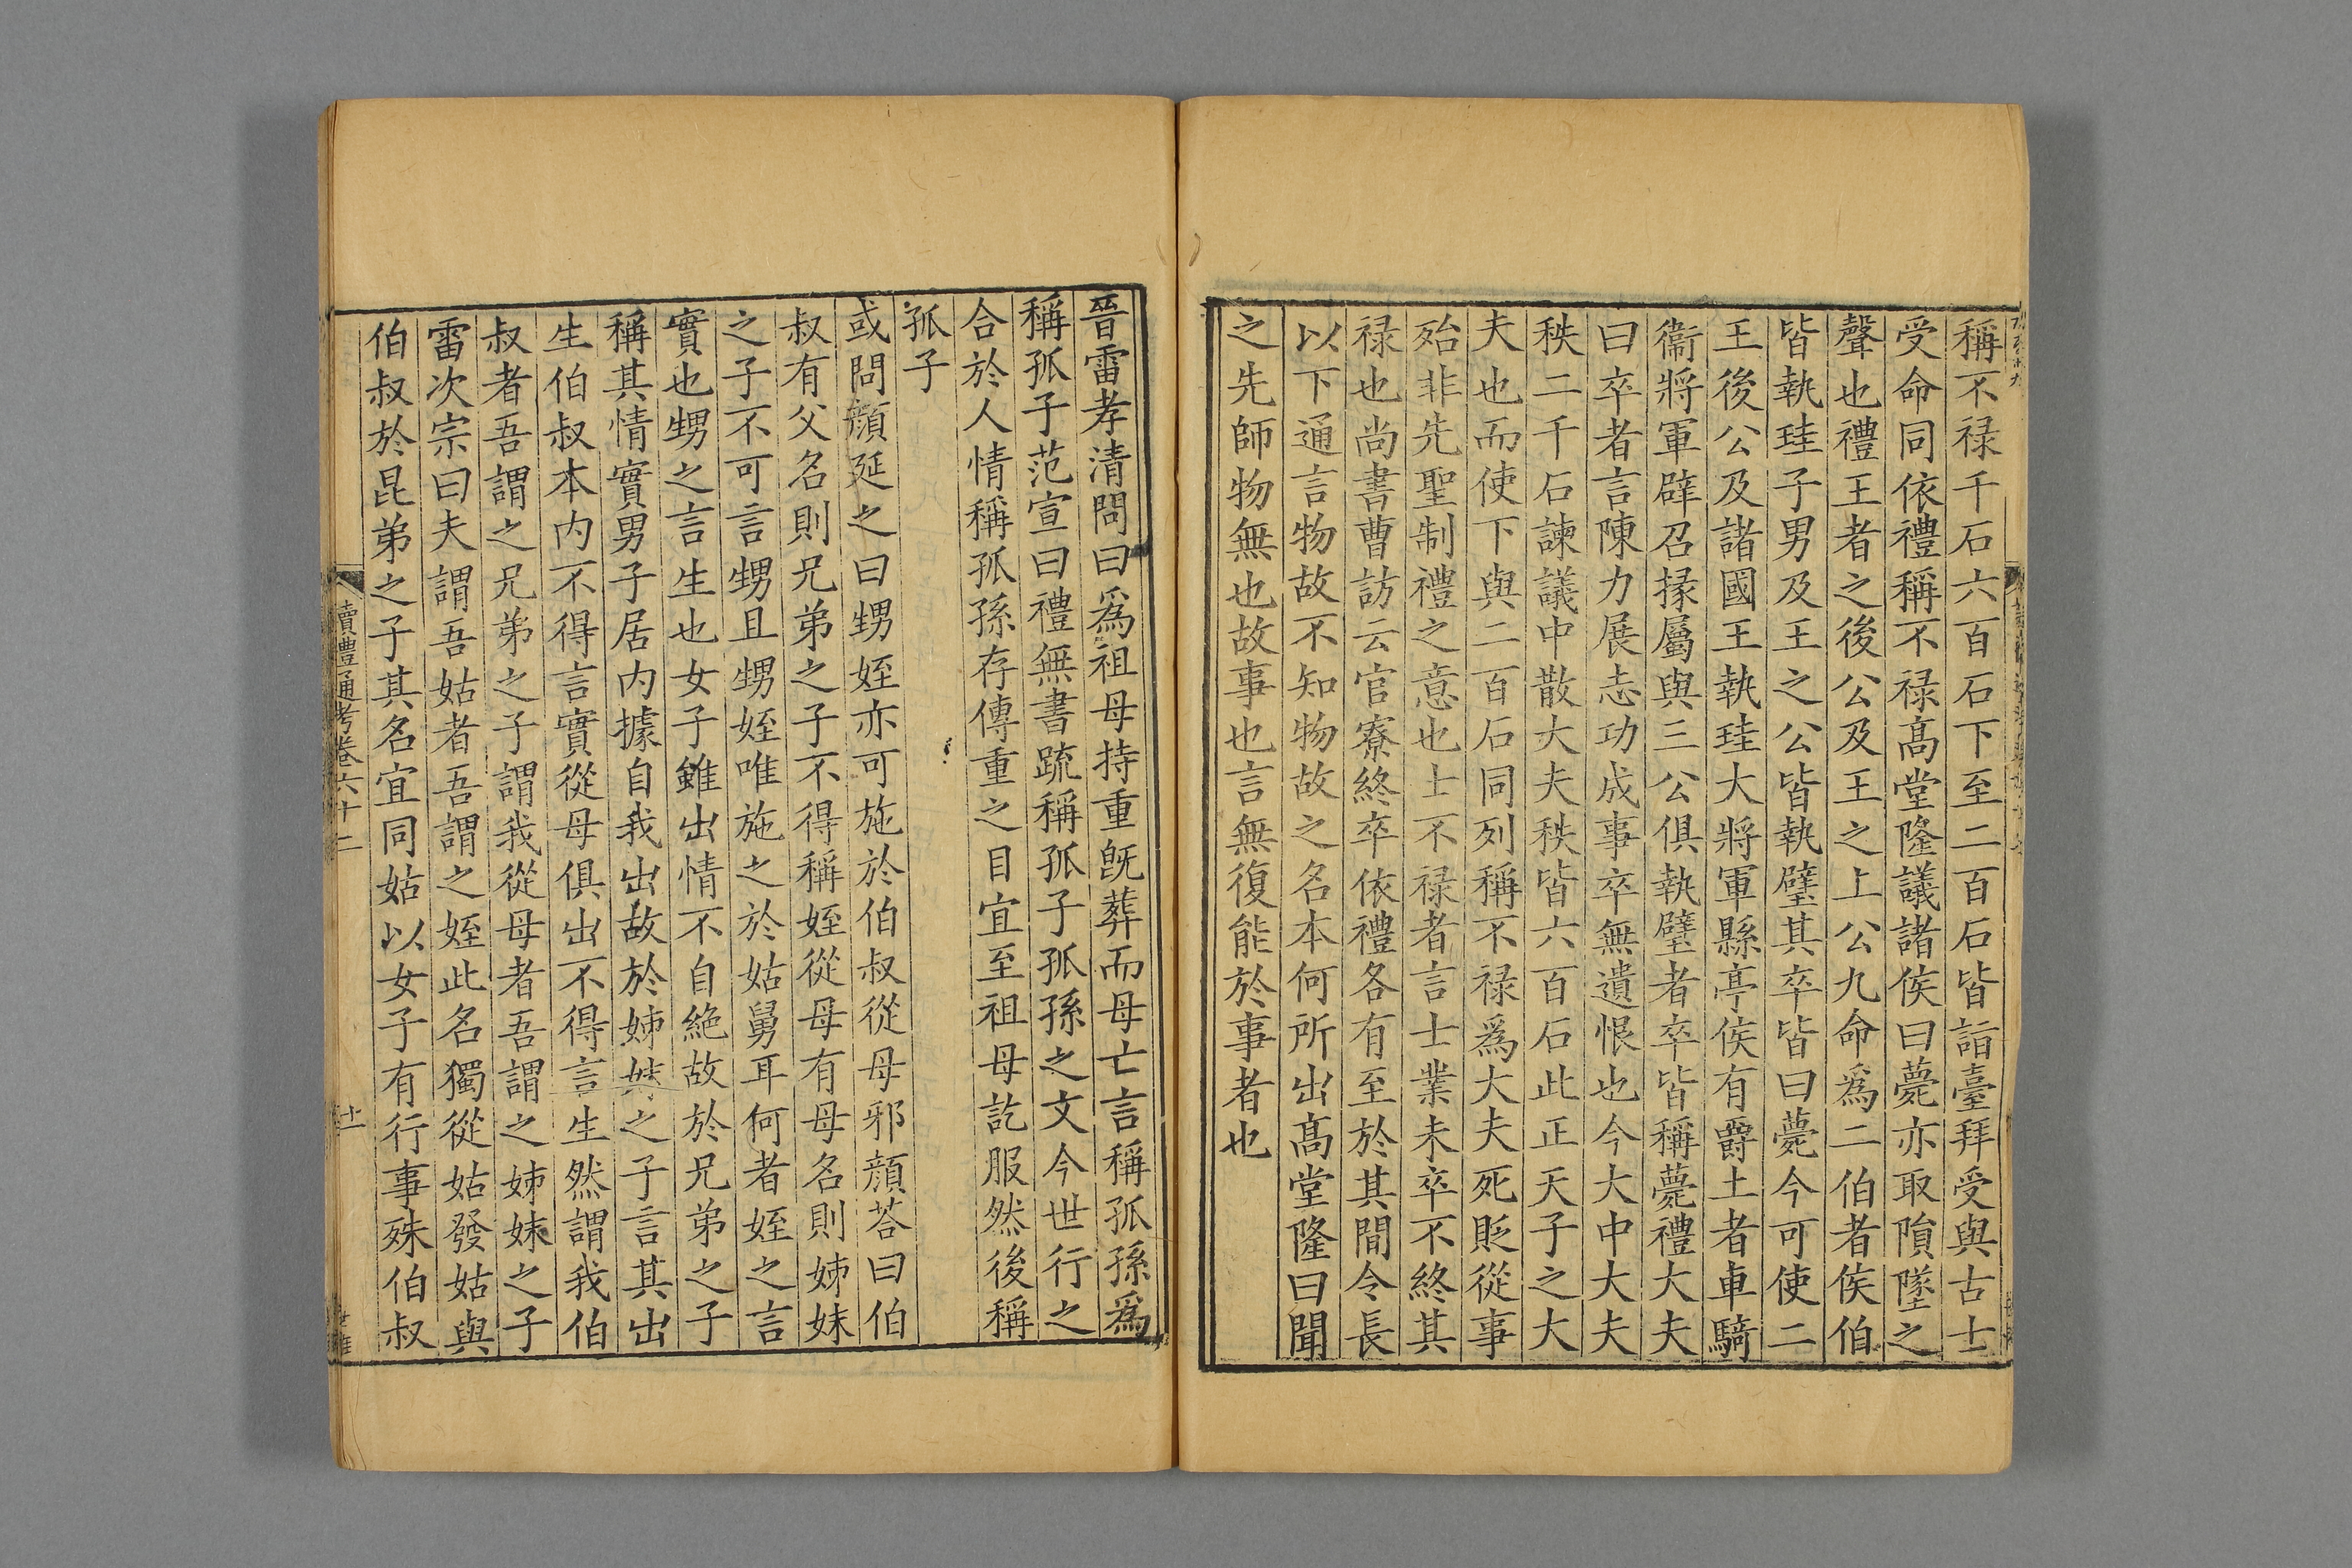 稱不禄千石六百石下至二百石皆詣臺拜受與古士
受命同依禮稱不禄高堂隆議諸侯曰薨亦取隕墜之
聲也禮王者之後公及王之上公九命爲二伯者侯伯
皆執珪子男及王之公皆執璧其卒皆曰薨今可使二
王後公及諸國王執珪大將軍縣亭侯有爵土者車騎
衞將軍辟召掾屬與三公俱執璧者卒皆稱薨禮大夫
曰卒者言陳力展志功成事卒無遺恨也今大中大夫
秩二千石諫議中散大夫秩皆六百石此正天子之大
夫也而使下與二百石同列稱不禄爲大夫死貶從事
殆非先聖制禮之意也士不禄者言士業未卒不終其
禄也尚書曹訪云官寮終卒依禮各有至於其間令長
以下通言物故不知物故之名本何所出高堂隆曰聞
之先師物無也故事也言無復能於事者也
晉雷孝清問曰爲祖母持重旣葬而母亡言稱孤孫爲
稱孤子范宣曰禮無書疏稱孤子孤孫之文今世行之
合於人情稱孤孫存傳重之目宜至祖母訖服然後稱
孤子
或問顔延之曰甥姪亦可施於伯叔從母邪顔荅曰伯
叔有父名則兄弟之子不得稱姪從母有母名則姊妹
之子不可言甥且甥姪唯施之於姑舅耳何者姪之言
實也甥之言生也女子雖出情不自絶故於兄弟之子
稱其情實男子居内據自我出故於姊妹之子言其出
生伯叔本内不得言實從母俱出不得言生然謂我伯
叔者吾謂之兄弟之子謂我從母者吾謂之姊妹之子
雷次宗曰夫謂吾姑者吾謂之姪此名獨從姑發姑與
伯叔於昆弟之子其名宜同姑以女子有行事殊伯叔
讀禮通考卷六十二
十一